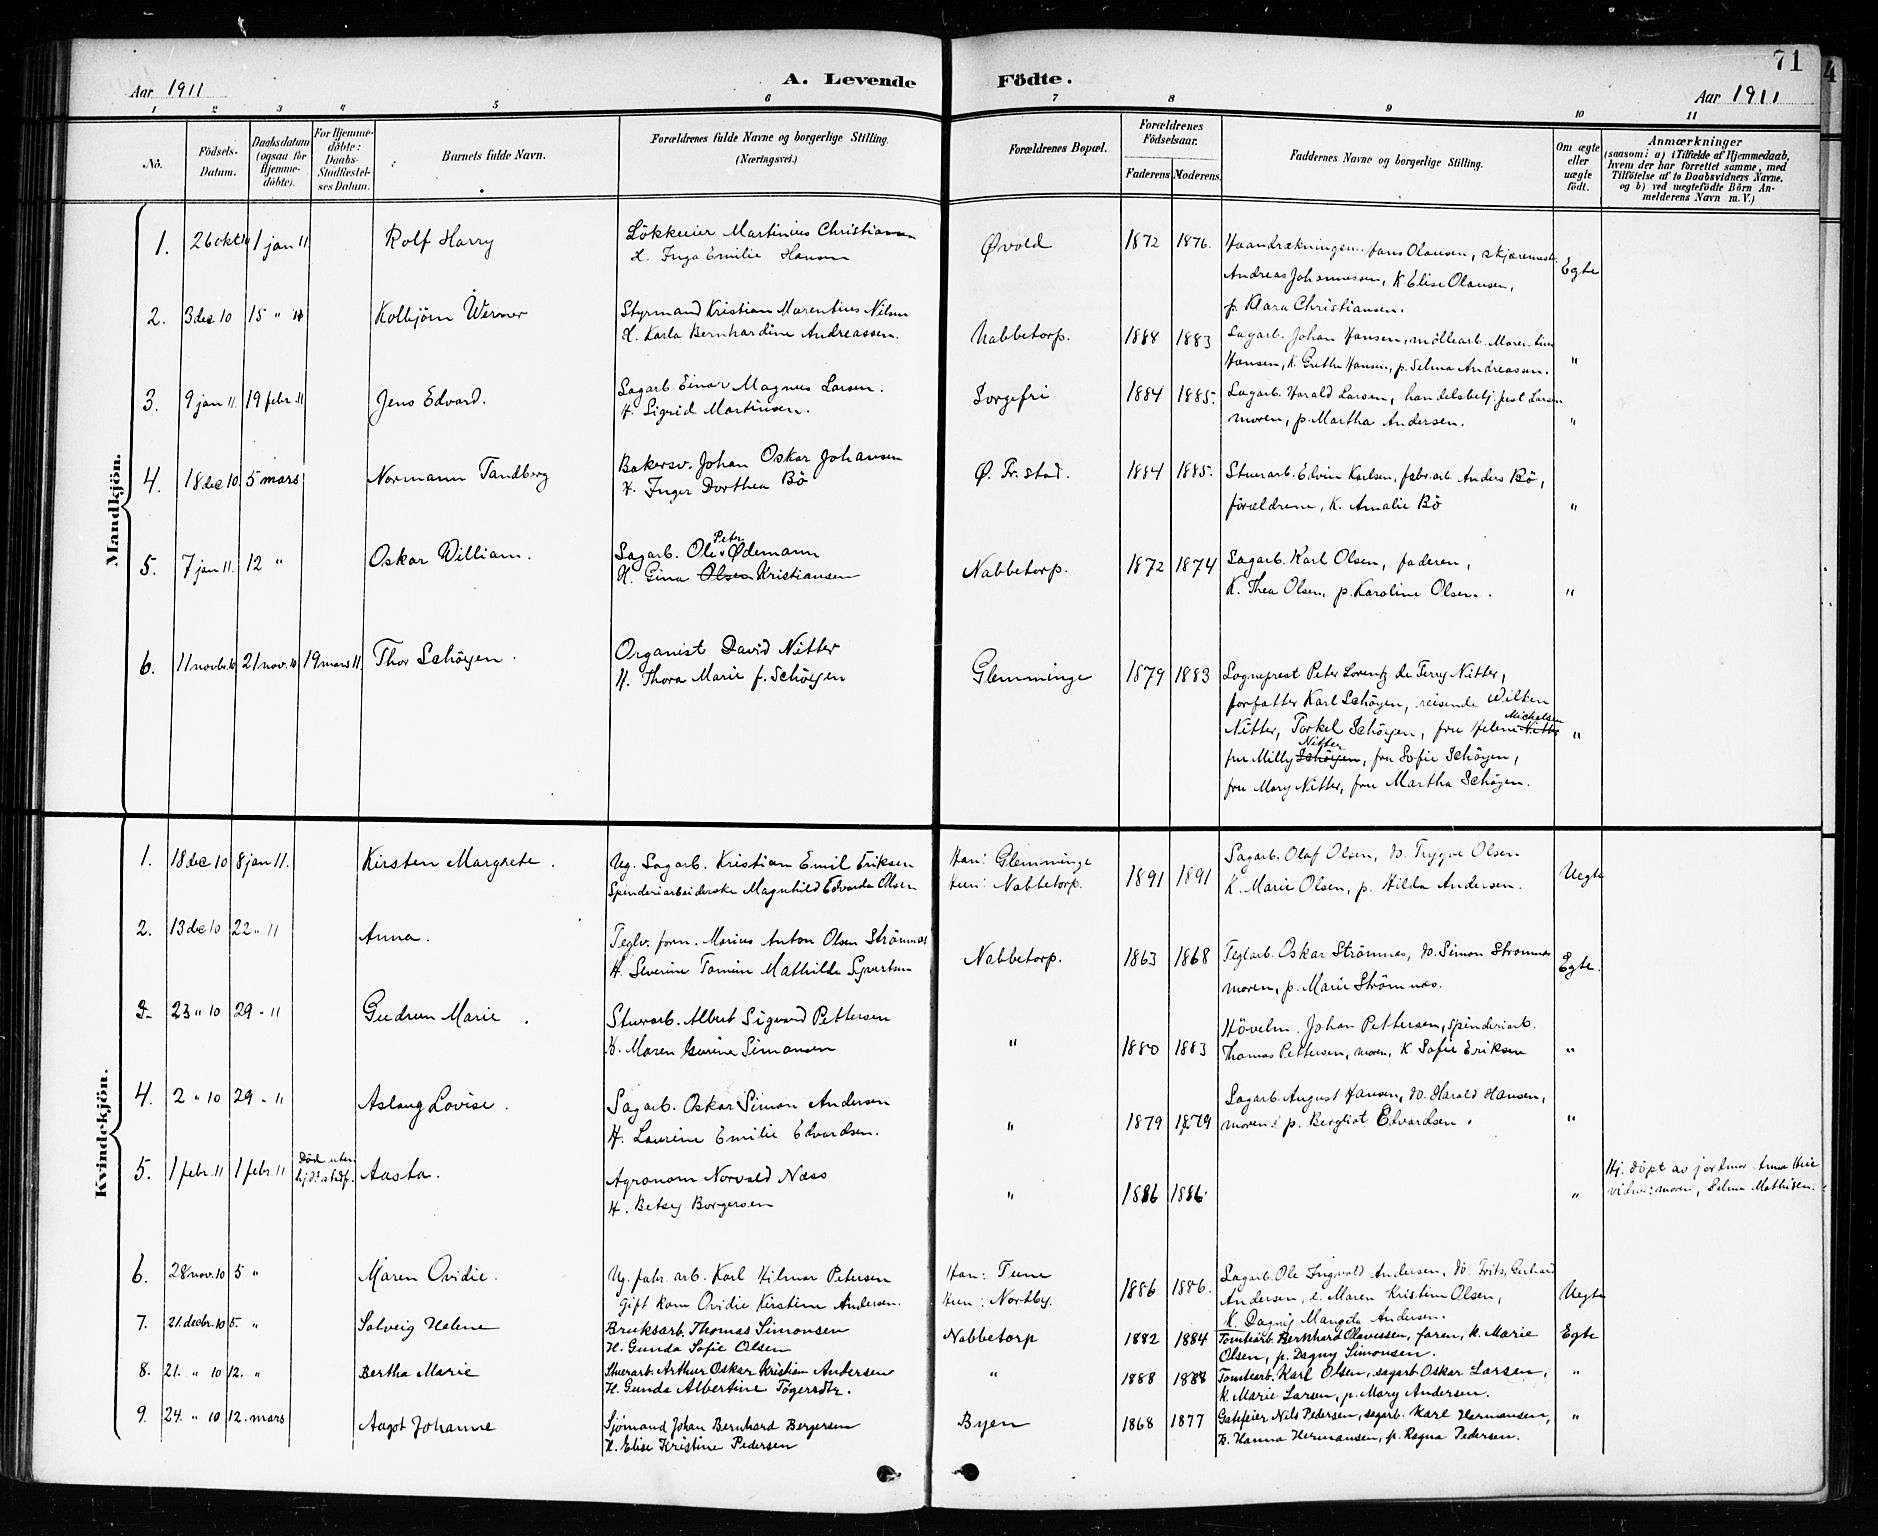 71
4
Aar 1911
A. Levende
Födte.
Aar 1911
1 2 3 4 5 6 7 8 9 10 11
No.
Födsels-
Datum.
Daabsdatum
(ogsaa for
Hjemme-
döbte).
For Hjemme-
döbte:
Daabs-
Stadfæstel-
ses Datum.
Barnets fulde Navn.
Forældrenes fulde Navne og borgerlige Stilling.
(Næringsvei.)
Forældrenes Bopæl.
Forældrenes
Födselsaar.
Faderens Moderens.
Faddernes Navne og borgerlige Stilling.
Om ægte
eller
uægte
födt.
Anmærkninger
(saasom: a) i Tilfælde af Hjemmedaab,
hvem der har forrettet samme, med
Tilföielse af to Daabsvidners Navne.
og b) ved uægtefödte Börn An-
melderens Navn m. V.)
Mandkjön.
1. 26 okt 10 1 jan 11. Rolf Harry
Lökkeier Martinius Christiansen
H. Inga Emilie Hansen
Øvold 1872 1876.
Haandrækningsm. Hans Olausen, skjærmest.
Andreas Johannessen, K. Elise Olausen,
p. Klara Christiansen.
Egte
2. 3 dec 10 15 " 11 Kolbjörn Werner
Styrmand Kristian Marentius Nilsen
H. Karla Bernhardine Andreassen.
Nabbetorp. 1884 1883
Sagarb. Johan Hansen, möllearb. Marentius
Hansen, K. Grethe Hansen, p. Selma Andreassen.
"
3. 9 jan 11. 19 febr 11 Jens Edvard.
Sagarb. Einar Magnus Larsen.
H. Sigrid Martinsen.
Sorgefri 1884 1885.
Sagarb. Harald Larsen, handelsbetj. Just Larsen
moren, p. Martha Andersen.
"
4. 18 dec 10 5 mars Normann Tandberg
Bakersv. Johan Oskar Johansen
H. Inger Dorthea Bö
Ø. Fr.stad. 1884 1885.
Stuerarb. Edvin Karlsen, fabr.arb. Anders Bö,
forældrene, K. Amalie Bö
"
5. 7 jan 11. 12 " Oskar William.
Sagarb. Ole Peter Ødemann
H. Gina Olsen Kristiansen
Nabbetorp. 1872 1874
Sagarb. Karl Olsen, faderen,
K. Thea Olsen, p. Karoline Olsen.
"
6. 11 novbr. 10 21 nov. 10 19 mars 11. Thor Schöyen.
Organist David Nitter
H. Thora Marie f. Schöyen
Glemminge 1879 1883
Sogneprest Peter Lorentz de Ferry Nitter,
forfatter Karl Schöyen, reisende Wilken
Nitter, Torkel Schöyen, fru Helene Nitter Michelsen
fru Milly Schöyen Nitter, fru Sofie Schöyen,
fru Mary Nitter, fru Martha Schöyen.
"
Kvindekjön.
1. 18 dec 10 8 jan 11. Kirsten Margrete.
Ug. Sagarb. Kristian Emil Eriksen
Spinderiarbeiderske Magnhild Edvarda Olsen
Han: Glemminge
Hun: Nabbetorp.
1891 1891
Sagarb. Olaf Olsen, do. Trygve Olsen
K. Marie Olsen, p. Hilda Andersen.
Uegte
2. 13 dec 10 22 " 11 Anna.
Teglv. form. Marius Anton Olsen Strömnes
H. Severine Tomine Mathilde Syvertsen
Nabbetorp. 1863 1868
Teglarb. Oskar Strömnes, do. Simon Strömnes
moren, p. Marie Strömnes.
Egte.
3. 23 " 10 29 " 11 Gudrun Marie.
Stuerarb. Albert Sigvard Pettersen
H. Maren Gurine Simonsen
" 1880 1883
Hövelm. Johan Pettersen, spinderiarb.
Thomas Pettersen, moren, K. Sofie Eriksen
"
4. 2 " 10 29 " 11 Aslaug Lovise.
Sagarb. Oskar Simon Andersen
H. Laurine Emilie Edvardsen.
" 1879 1879
Sagarb. August Hansen, do. Harald Hansen,
moren, p. Bergliot Edvardsen.
"
5. 1 febr. 11 1 febr. 11 Död uten
hj.d. stadf. Aasta.
Agronom Norvald Næss
H. Betsy Borgersen
" 1886 1886. "
Hj. döpt av jordmor Anna Hvie
vidner: moren, Selma Mathisen.
6. 28 nov. 10 5 " Maren Ovidie.
Ug. fabr. arb. Karl Hilmar Petersen
Gift kone Ovidie Kirstine Andersen.
Han: Tune
Hun: Nortby.
1886 1886.
Sagarb. Ole Ingvald Andersen, do. Frits Gerhard
Andersen, e. Maren Kristine Olsen,
K. Dagny Margita Andersen.
Uegte
7. 21. decbr. 10 5. " Solveig Helene
Bruksarb. Thomas Simonsen
H. Gunda Sofie Olsen
Nabbetorp 1882 1884
Tomtearb. Bernhard Olavessen, faren, k. Marie
Olsen, p. Dagny Simonsen.
Egte
8. 21. " 10 12. " Bertha Marie
Stuerarb. Arthur Oskar Kristian Andersen
H. Gunda Albertine Tögersdtr.
" 1888 1888
Tomtearb. Karl Olsen, sagarb. Oskar Larsen,
k. Marie Larsen, p. Mary Andersen.
"
9. 24. " 10 12. mars Aagot Johanne
Sjømand Johan Bernhard Bergersen
H. Elise Kristine Pedersen
Byen 1868 1877
Gatefeier Nils Pedersen, sagarb. Karl Hermansen,
k. Hanna Hermansen, p. Ragna Pedersen.
"